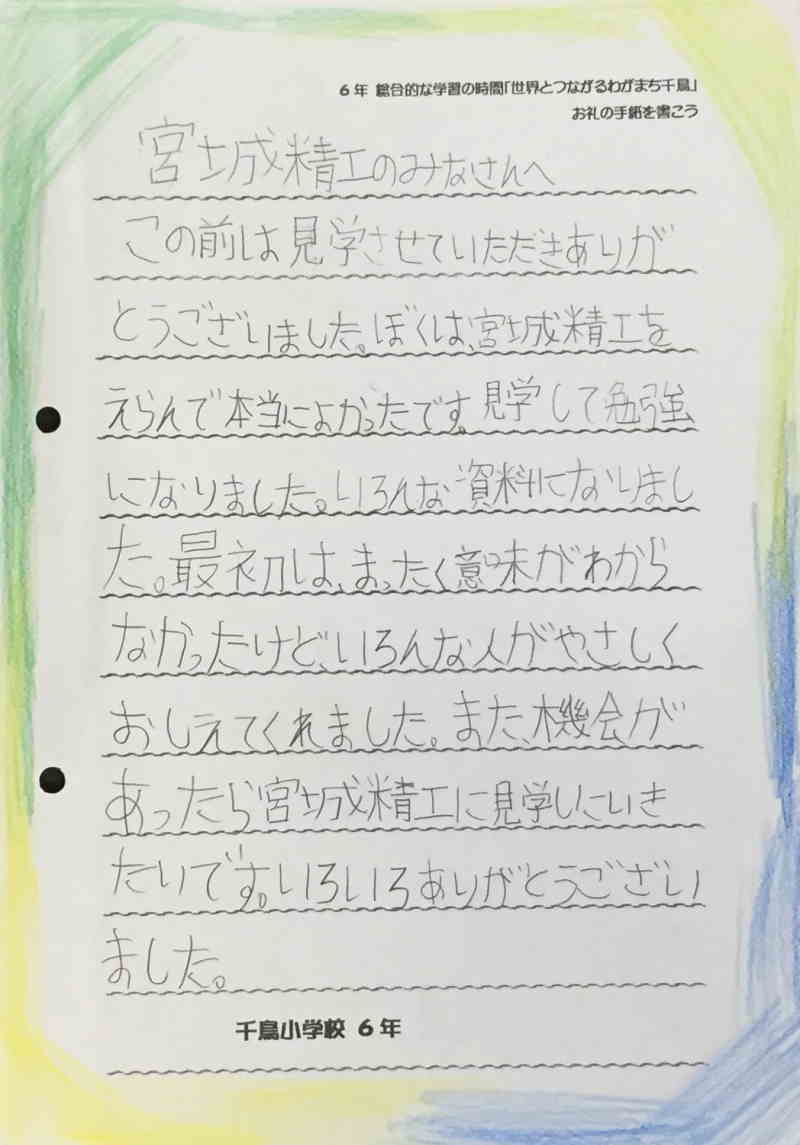 6年 総合的な学習の時間「世界とつながるわがまち千鳥」
お礼の手紙を書こう
宮城精工のみなさんへ
この前は見学させていただきありが
とうございました。ぼくは、宮城精工を
えらんで本当によかったです。見学して勉強
になりました。いろんな資料になりまし
た。最初は、まったく意味がわから
なかったけど、いろんな人がやさしく
おしえてくれました。また、機会が
あったら宮城精工に見学しにいき
たいです。いろいろありがとうござい
ました。
千鳥小学校 6年